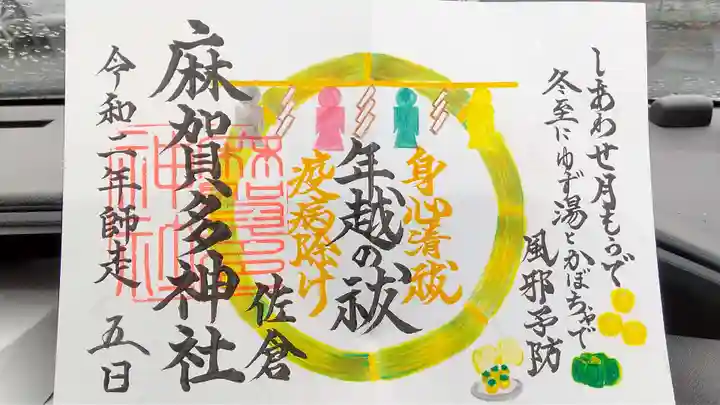 しあわせ月もうで
冬至にゆず湯とかぼちゃで
風邪予防
身心清祓
年越の祓
疫病除け
佐倉
麻賀多神社
令和二年師走 五日